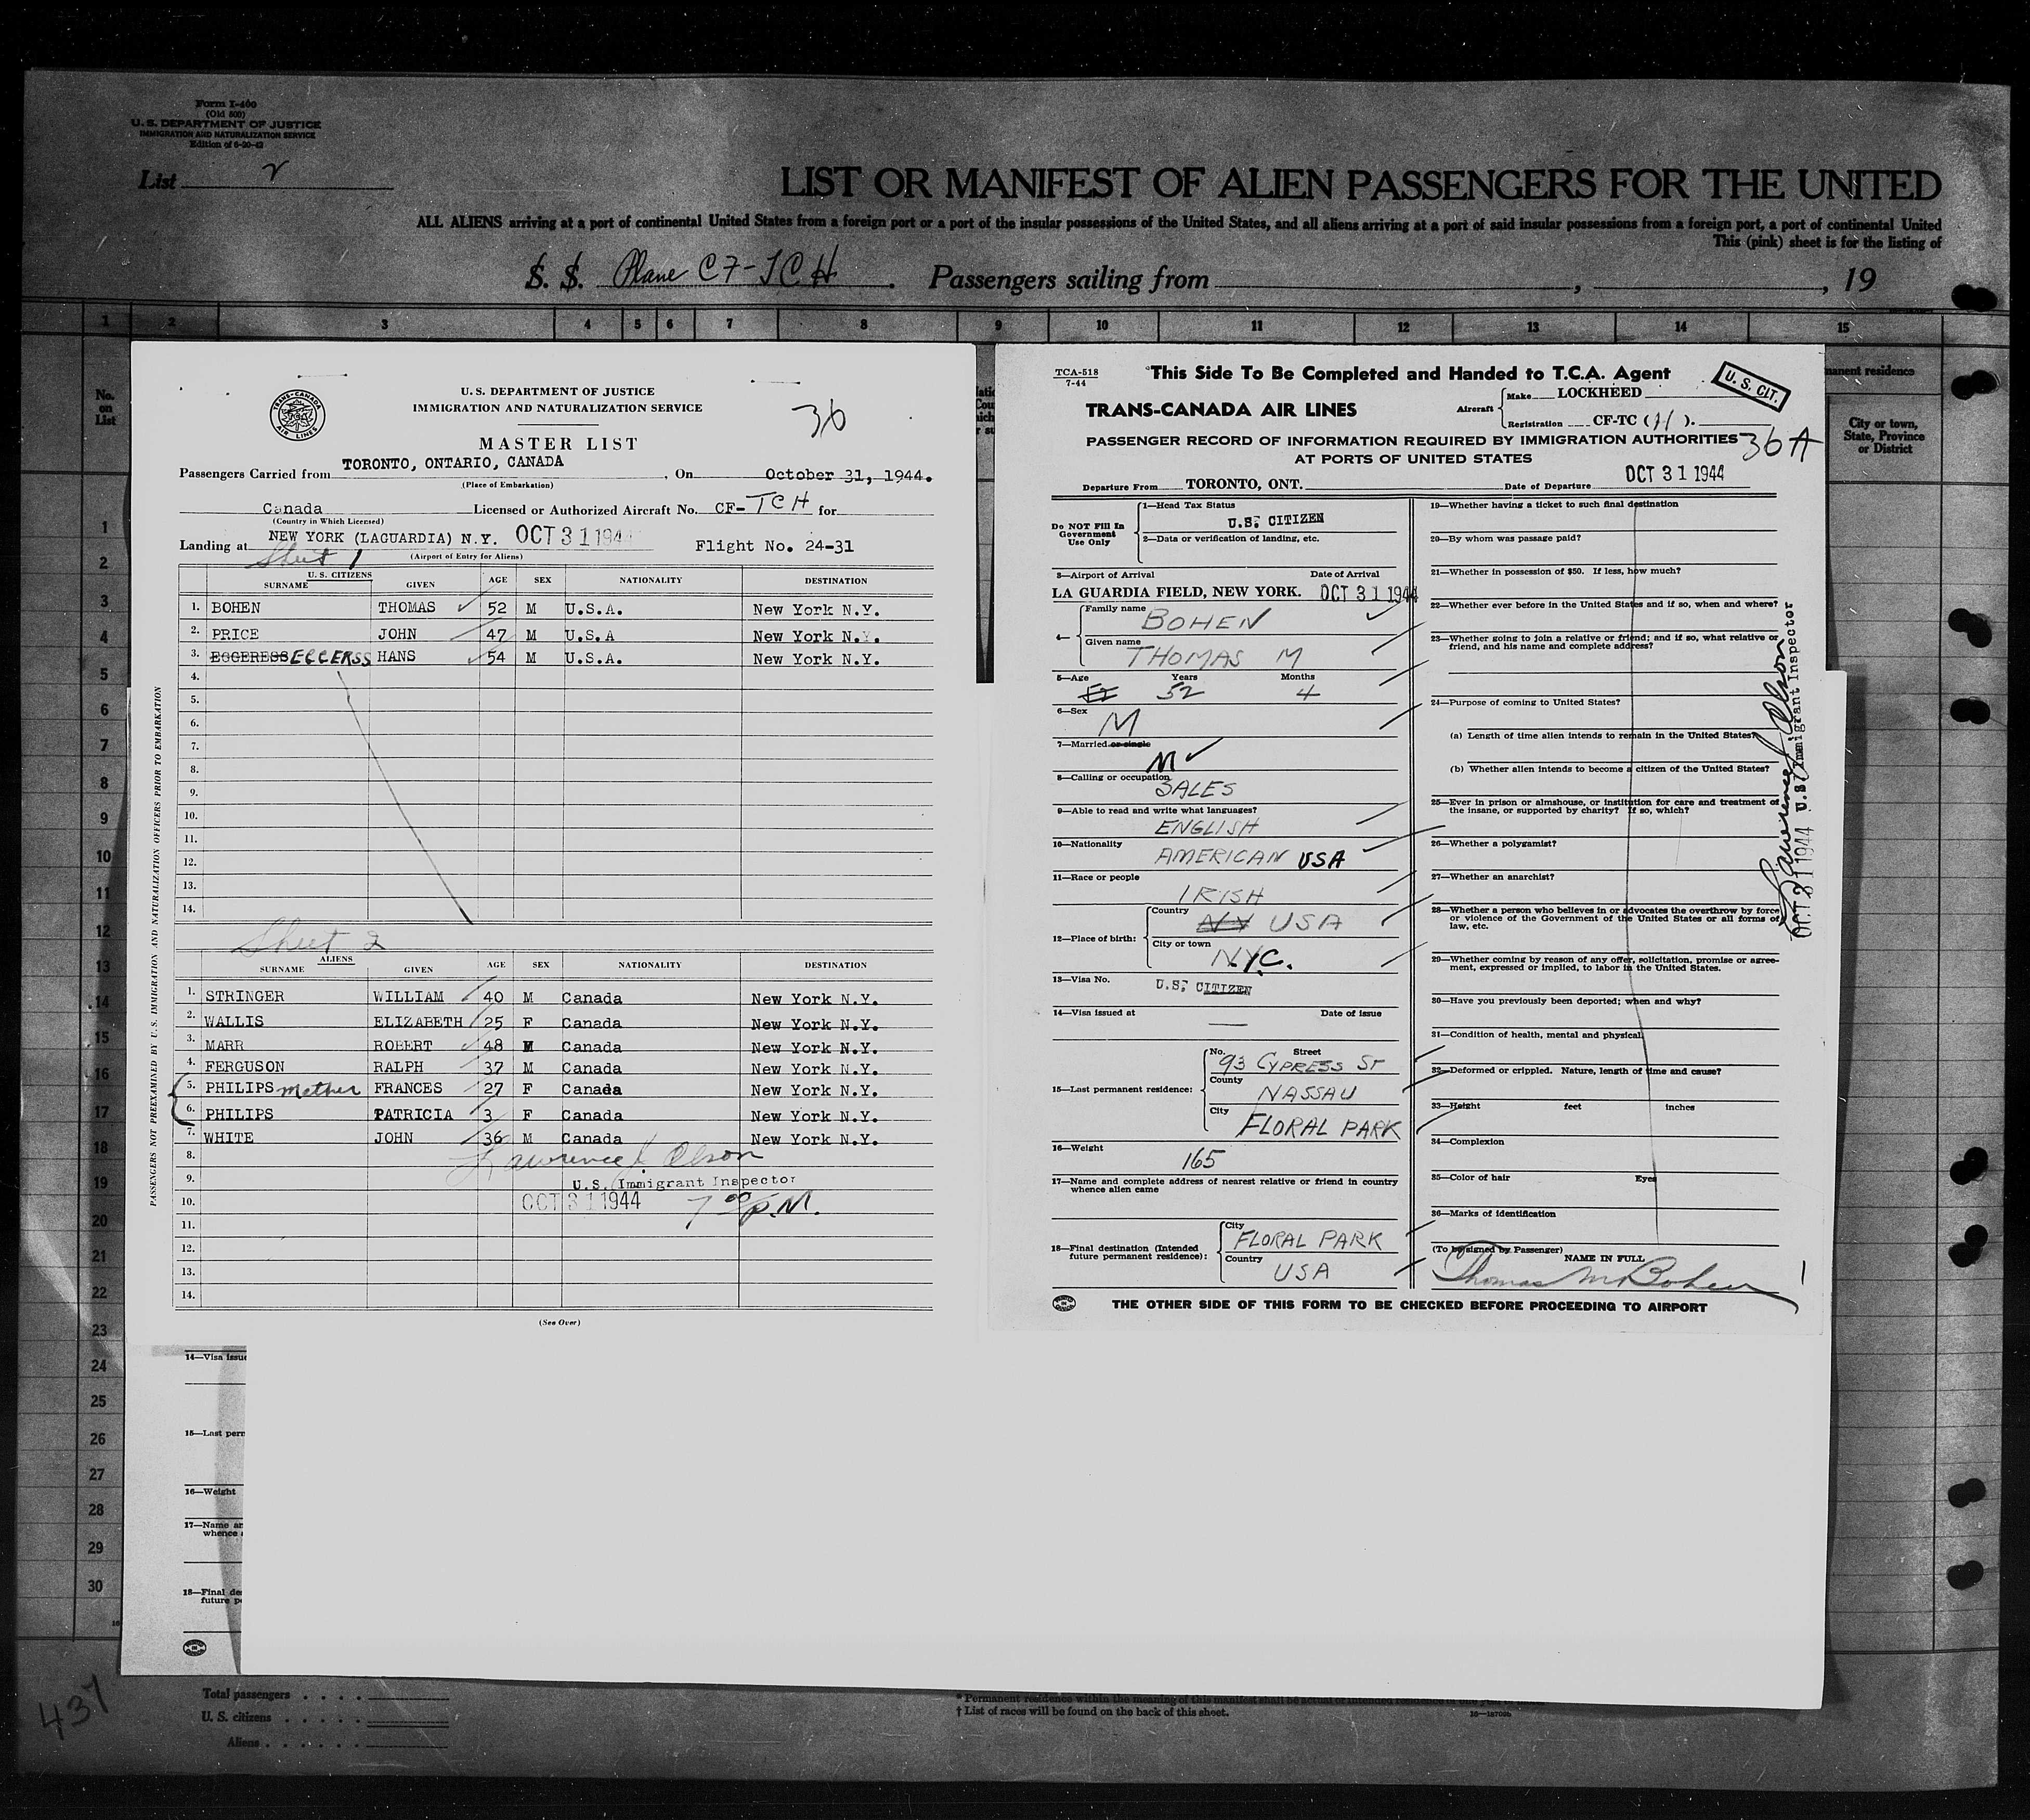 Form I-400
(Old 500)
U. S. DEPARTMENT OF JUSTICE
IMMIGRATION AND NATURALIZATION SERVICE
Edition of 6-20-42
List 2
LIST OR MANIFEST OF ALIEN PASSENGERS FOR THE UNITED
ALL ALIENS arriving at a port of continental United States from a foreign port or a port of the insular possessions of the United States, and all aliens arriving at a port of said insular possessions from a foreign port, a port of continental United
This (pink) sheet is for the listing of
S. S. Plane CF-TCH . Passengers sailing from , , 19
1 2 3 4 5 6 7 8 9 10 11 12 13 14 15
No. on List
manent residence
City or town, State, Province or District
1
2
3
4
5
6
7
8
9
10
11
12
13
14
15
16
17
18
19
20
21
22
23
24
25
26
27
28
29
30
TRANS-CANADA AIR LINES
U. S. DEPARTMENT OF JUSTICE
IMMIGRATION AND NATURALIZATION SERVICE
36
MASTER LIST
Passengers Carried from TORONTO, ONTARIO, CANADA , On October 31, 1944.
(Place of Embarkation)
Canada Licensed or Authorized Aircraft No. CF-TCH for
(Country in Which Licensed)
Landing at NEW YORK (LAGUARDIA) N.Y. OCT 31 1944 Flight No. 24-31
(Airport of Entry for Aliens)
Sheet 1
U. S. CITIZENS
SURNAME GIVEN AGE SEX NATIONALITY DESTINATION
1. BOHEN THOMAS 52 M U.S.A. New York N.Y.
2. PRICE JOHN 47 M U.S.A New York N.Y.
3. EGGERESS EGGERSS HANS 54 M U.S.A. New York N.Y.
4.
5.
6.
7.
8.
9.
10.
11.
12.
13.
14.
Sheet 2
ALIENS
SURNAME GIVEN AGE SEX NATIONALITY DESTINATION
1. STRINGER WILLIAM 40 M Canada New York N.Y.
2. WALLIS ELIZABETH 25 F Canada New York N.Y.
3. MARR ROBERT 48 M Canada New York N.Y.
4. FERGUSON RALPH 37 M Canada New York N.Y.
5. PHILIPS mother FRANCES 27 F Canada New York N.Y.
6. PHILIPS PATRICIA 3 F Canada New York N.Y.
7. WHITE JOHN 36 M Canada New York N.Y.
8. Lawrence J. Olson
9. U.S. Immigrant Inspector
10. OCT 31 1944 7 00 P.M.
11.
12.
13.
14.
(See Over)
PASSENGERS NOT PREEXAMINED BY U. S. IMMIGRATION AND NATURALIZATION OFFICERS PRIOR TO EMBARKATION
TCA-518
7-44
This Side To Be Completed and Handed to T.C.A. Agent
U. S. CIT.
TRANS-CANADA AIR LINES
Aircraft Make LOCKHEED
Registration CF-TC (H).
PASSENGER RECORD OF INFORMATION REQUIRED BY IMMIGRATION AUTHORITIES 36A
AT PORTS OF UNITED STATES
Departure From TORONTO, ONT. Date of Departure OCT 31 1944
Do NOT Fill In Government Use Only
1—Head Tax Status
U.S. CITIZEN
2—Data or verification of landing, etc.
3—Airport of Arrival Date of Arrival
LA GUARDIA FIELD, NEW YORK. OCT 31 1944
4— Family name
BOHEN
Given name
THOMAS M
5—Age Years Months
52 4
6—Sex
M
7—Married or single
M
8—Calling or occupation
SALES
9—Able to read and write what languages?
ENGLISH
10—Nationality
AMERICAN USA
11—Race or people
IRISH
12—Place of birth: Country
NY USA
City or town
NYC.
13—Visa No.
U.S. CITIZEN
14—Visa issued at Date of issue
—
15—Last permanent residence: No. Street
93 CYPRESS ST
County
NASSAU
City
FLORAL PARK
16—Weight
165
17—Name and complete address of nearest relative or friend in country whence alien came
18—Final destination (Intended future permanent residence): City
FLORAL PARK
Country
USA
19—Whether having a ticket to such final destination
20—By whom was passage paid?
21—Whether in possession of $50. If less, how much?
22—Whether ever before in the United States and if so, when and where?
23—Whether going to join a relative or friend; and if so, what relative or friend, and his name and complete address?
24—Purpose of coming to United States?
(a) Length of time alien intends to remain in the United States?
(b) Whether alien intends to become a citizen of the United States?
25—Ever in prison or almshouse, or institution for care and treatment of the insane, or supported by charity? If so, which?
26—Whether a polygamist?
27—Whether an anarchist?
28—Whether a person who believes in or advocates the overthrow by force or violence of the Government of the United States or all forms of law, etc.
29—Whether coming by reason of any offer, solicitation, promise or agreement, expressed or implied, to labor in the United States.
30—Have you previously been deported; when and why?
31—Condition of health, mental and physical.
32—Deformed or crippled. Nature, length of time and cause?
33—Height feet inches
34—Complexion
35—Color of hair Eyes
36—Marks of identification
(To be signed by Passenger) NAME IN FULL
Thomas M Bohen
THE OTHER SIDE OF THIS FORM TO BE CHECKED BEFORE PROCEEDING TO AIRPORT
Lawrence J. Olson
OCT 31 1944 U.S. Immigrant Inspector
14—Visa issue
15—Last perm
16—Weight
17—Name an
whence
18—Final des
future p
437
Total passengers
U. S. citizens
Aliens
* Permanent residence within the meaning of this manifest shall be actual or intended residence
† List of races will be found on the back of this sheet.